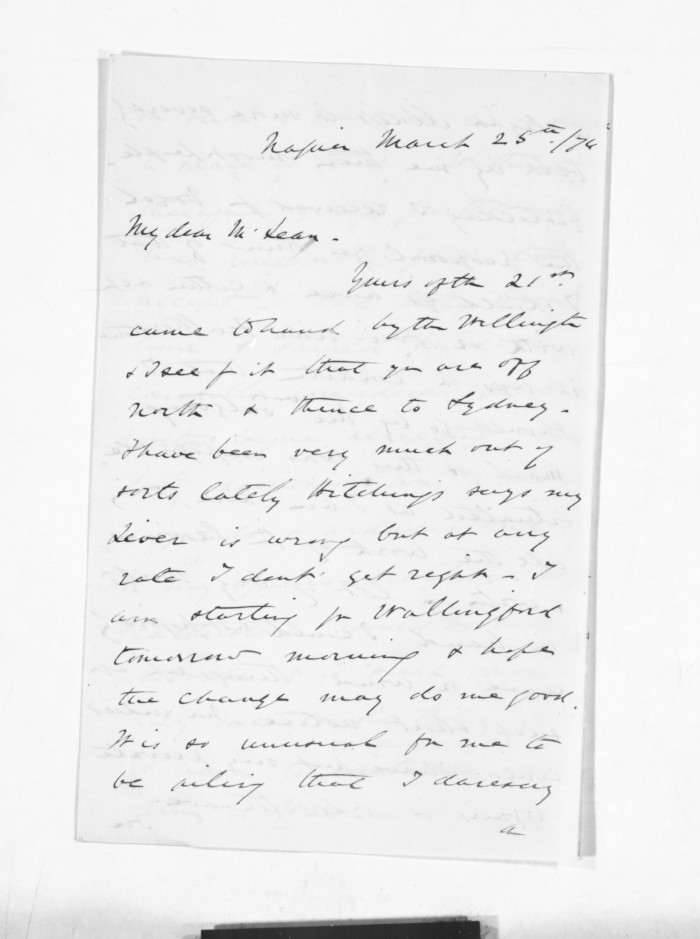 Napier March 25th/74
My dear McLean -
Yours of the 21st
came to hand by the Wellington
& I see f it that yu are off
north & thence to Sydney -
I have been very much out of
sorts lately Hitchings says my
Liver is wrong but at any
rate I dont get right - I
am starting for Wallingford
tomorrow morning & hope
the change may do me good.
It is so unusual for me to
be ailing that I daresay
a